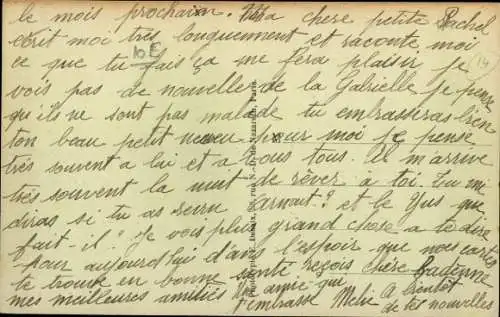 le mois prochain. Ma chere petite Rachel
écrit moi très longuement et raconte moi
10 E
ce que tu fais ça me fera plaisir je
14
vois pas de nouvelle de la Gabrielle je pense
qu'ils ne sont pas malade tu embrasseras bien
ton beau petit neveu pour moi je pense
très souvent a lui et a vous tous. Il m'arrive
très souvent la nuit de rêver à toi. Tu me
diras si tu as revu Arnaut? et le Gus que
fait-il? je vois plus grand chose a te dire
Pour aujourd'hui d'ans l'espoir que nos cartes
te trouve en bonne santé reçois chère
mes meilleures amitiés Une amie qui
t'embrasse A bientôt
de tes nouvelles